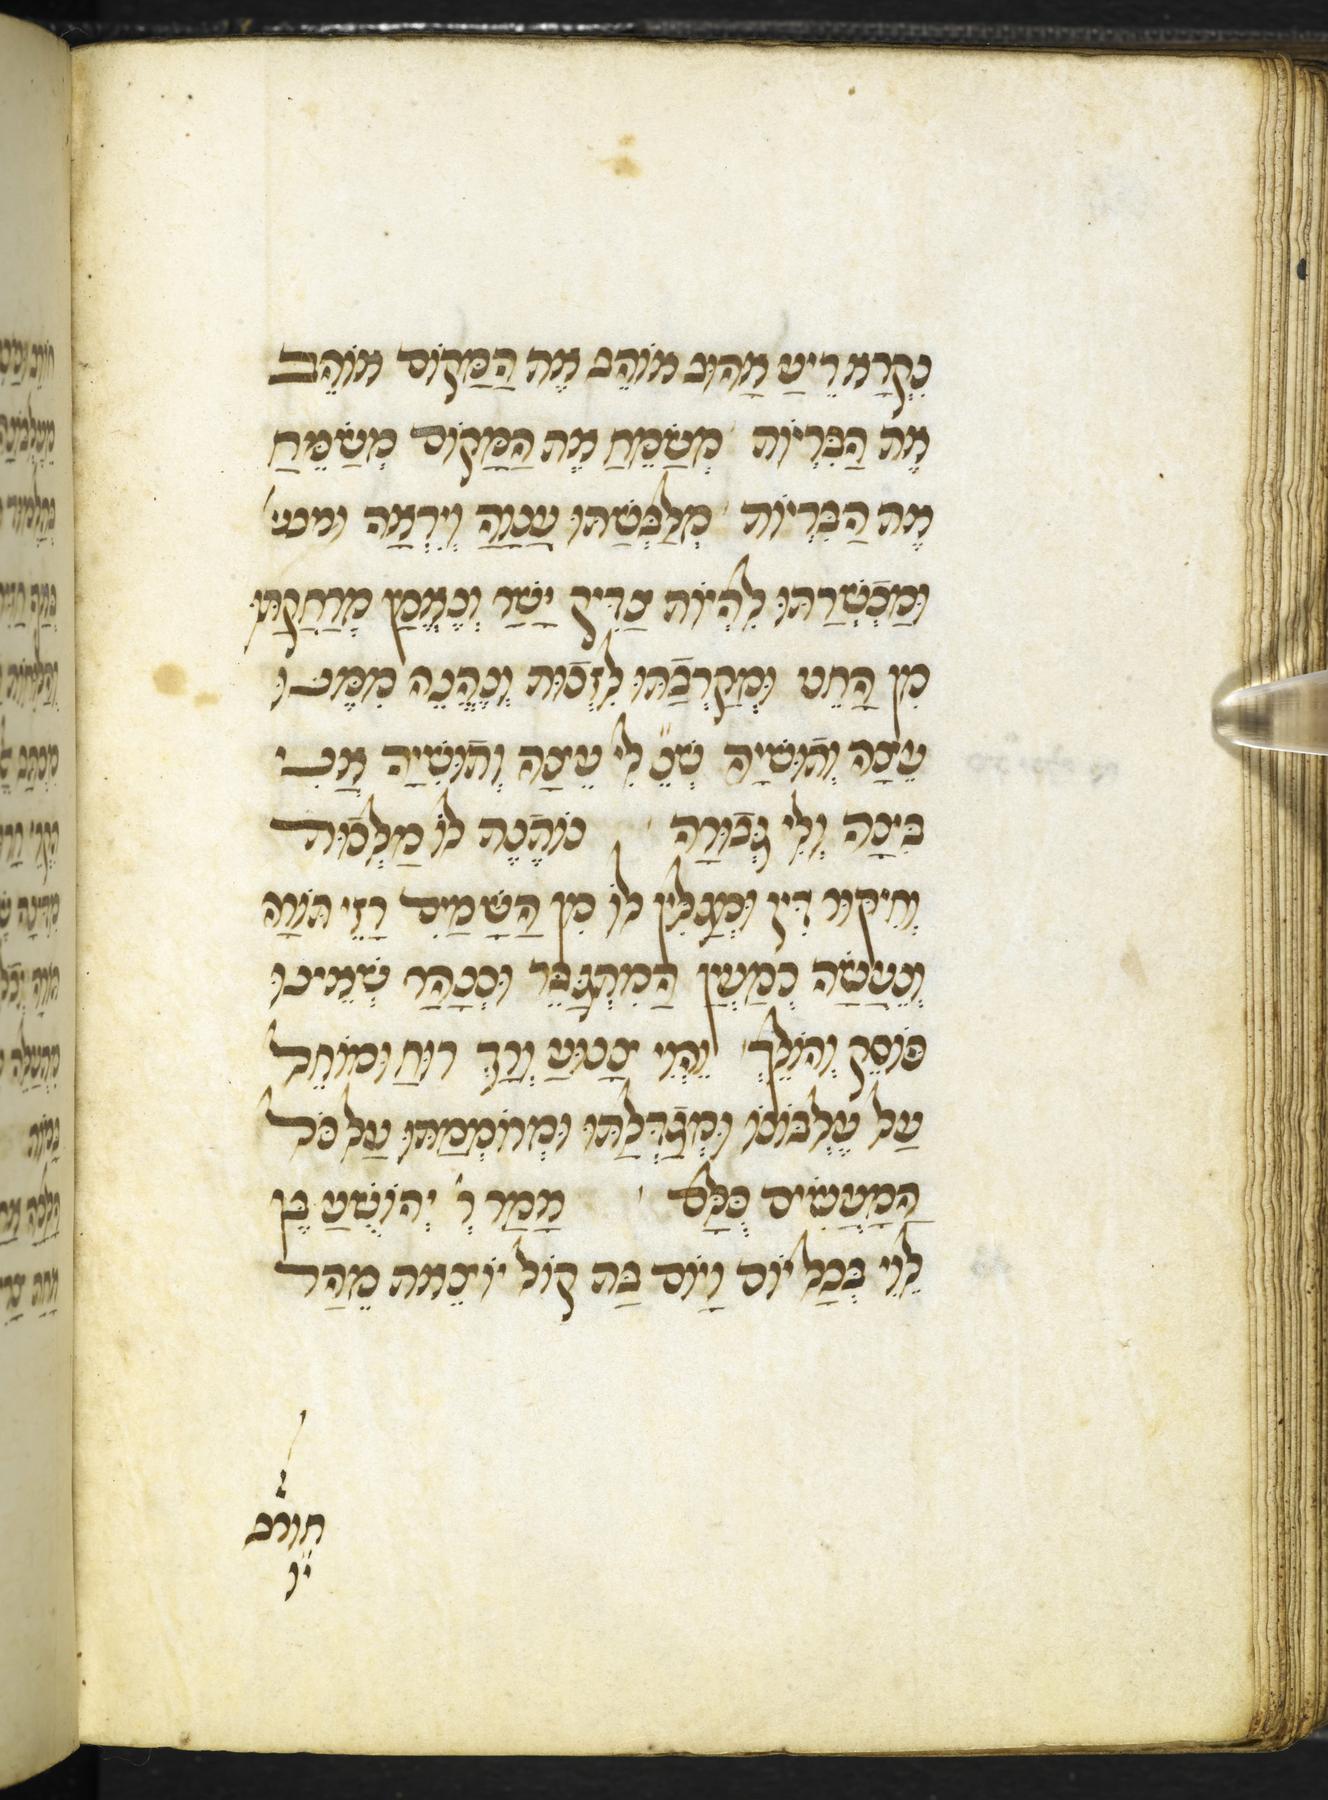 נִקְרָא רֵיעַ אָהוּב אוֹהֵב אֶת הַמָּקוֹם אוֹהֵב
אֶת הַבְּרִיּוֹת מְשַׂמֵּחַ אֶת הַמָּקוֹם מְשַׂמֵּחַ
אֶת הַבְּרִיּוֹת מְלַבַּשְׁתּוּ עֲנָוָה וְיִרְאָה ומכש
וּמַכְשַׁרְתּוּ לִהְיוֹת צַדִּיק יָשָׁר וְנֶאֱמָן מְרַחַקְתּוּ
מִן הַחֵט וּמְקָרַבְתּוּ לִזְכוּת וְנֶהֱנֶה מִמֶּנּוּ
עֵצָה וְתוּשִׁיָּה שֶׁנֶּ לִי עֵצָה וְתוּשִׁיָּה אֲנִי
בִּינָה וְלִי גְבוּרָה נוֹתֶנֶת לוֹ מַלְכוּת
וְחִיקּוּר דִּין וּמְגַלִּין לוֹ מִן הַשָּׁמַיִם רָזֵי תוֹרָה
וְנַעֲשָׂה כְמַעְיָן הַמִּתְגַּבֵּר וּכְנָהָר שֶׁאֵינוּ
פּוֹסֵק וְהוֹלֵךְ וֶהֱוֵי צָנוּעַ וְאֶרֶךְ רוּחַ וּמוֹחֵל
עַל עֶלְבּוֹנוֹ וּמְגַדַּלְתּוּ וּמְרוֹמַמְתּוּ עַל כֹּל
הַמַּעֲשִׂים כֻּלָּם אָמַר ר יְהוֹשֻׁעַ בֶּן
לֵוִי בְּכָל יוֹם וָיוֹם בַּת קוֹל יוֹצֵאת מֵהַר
חורב